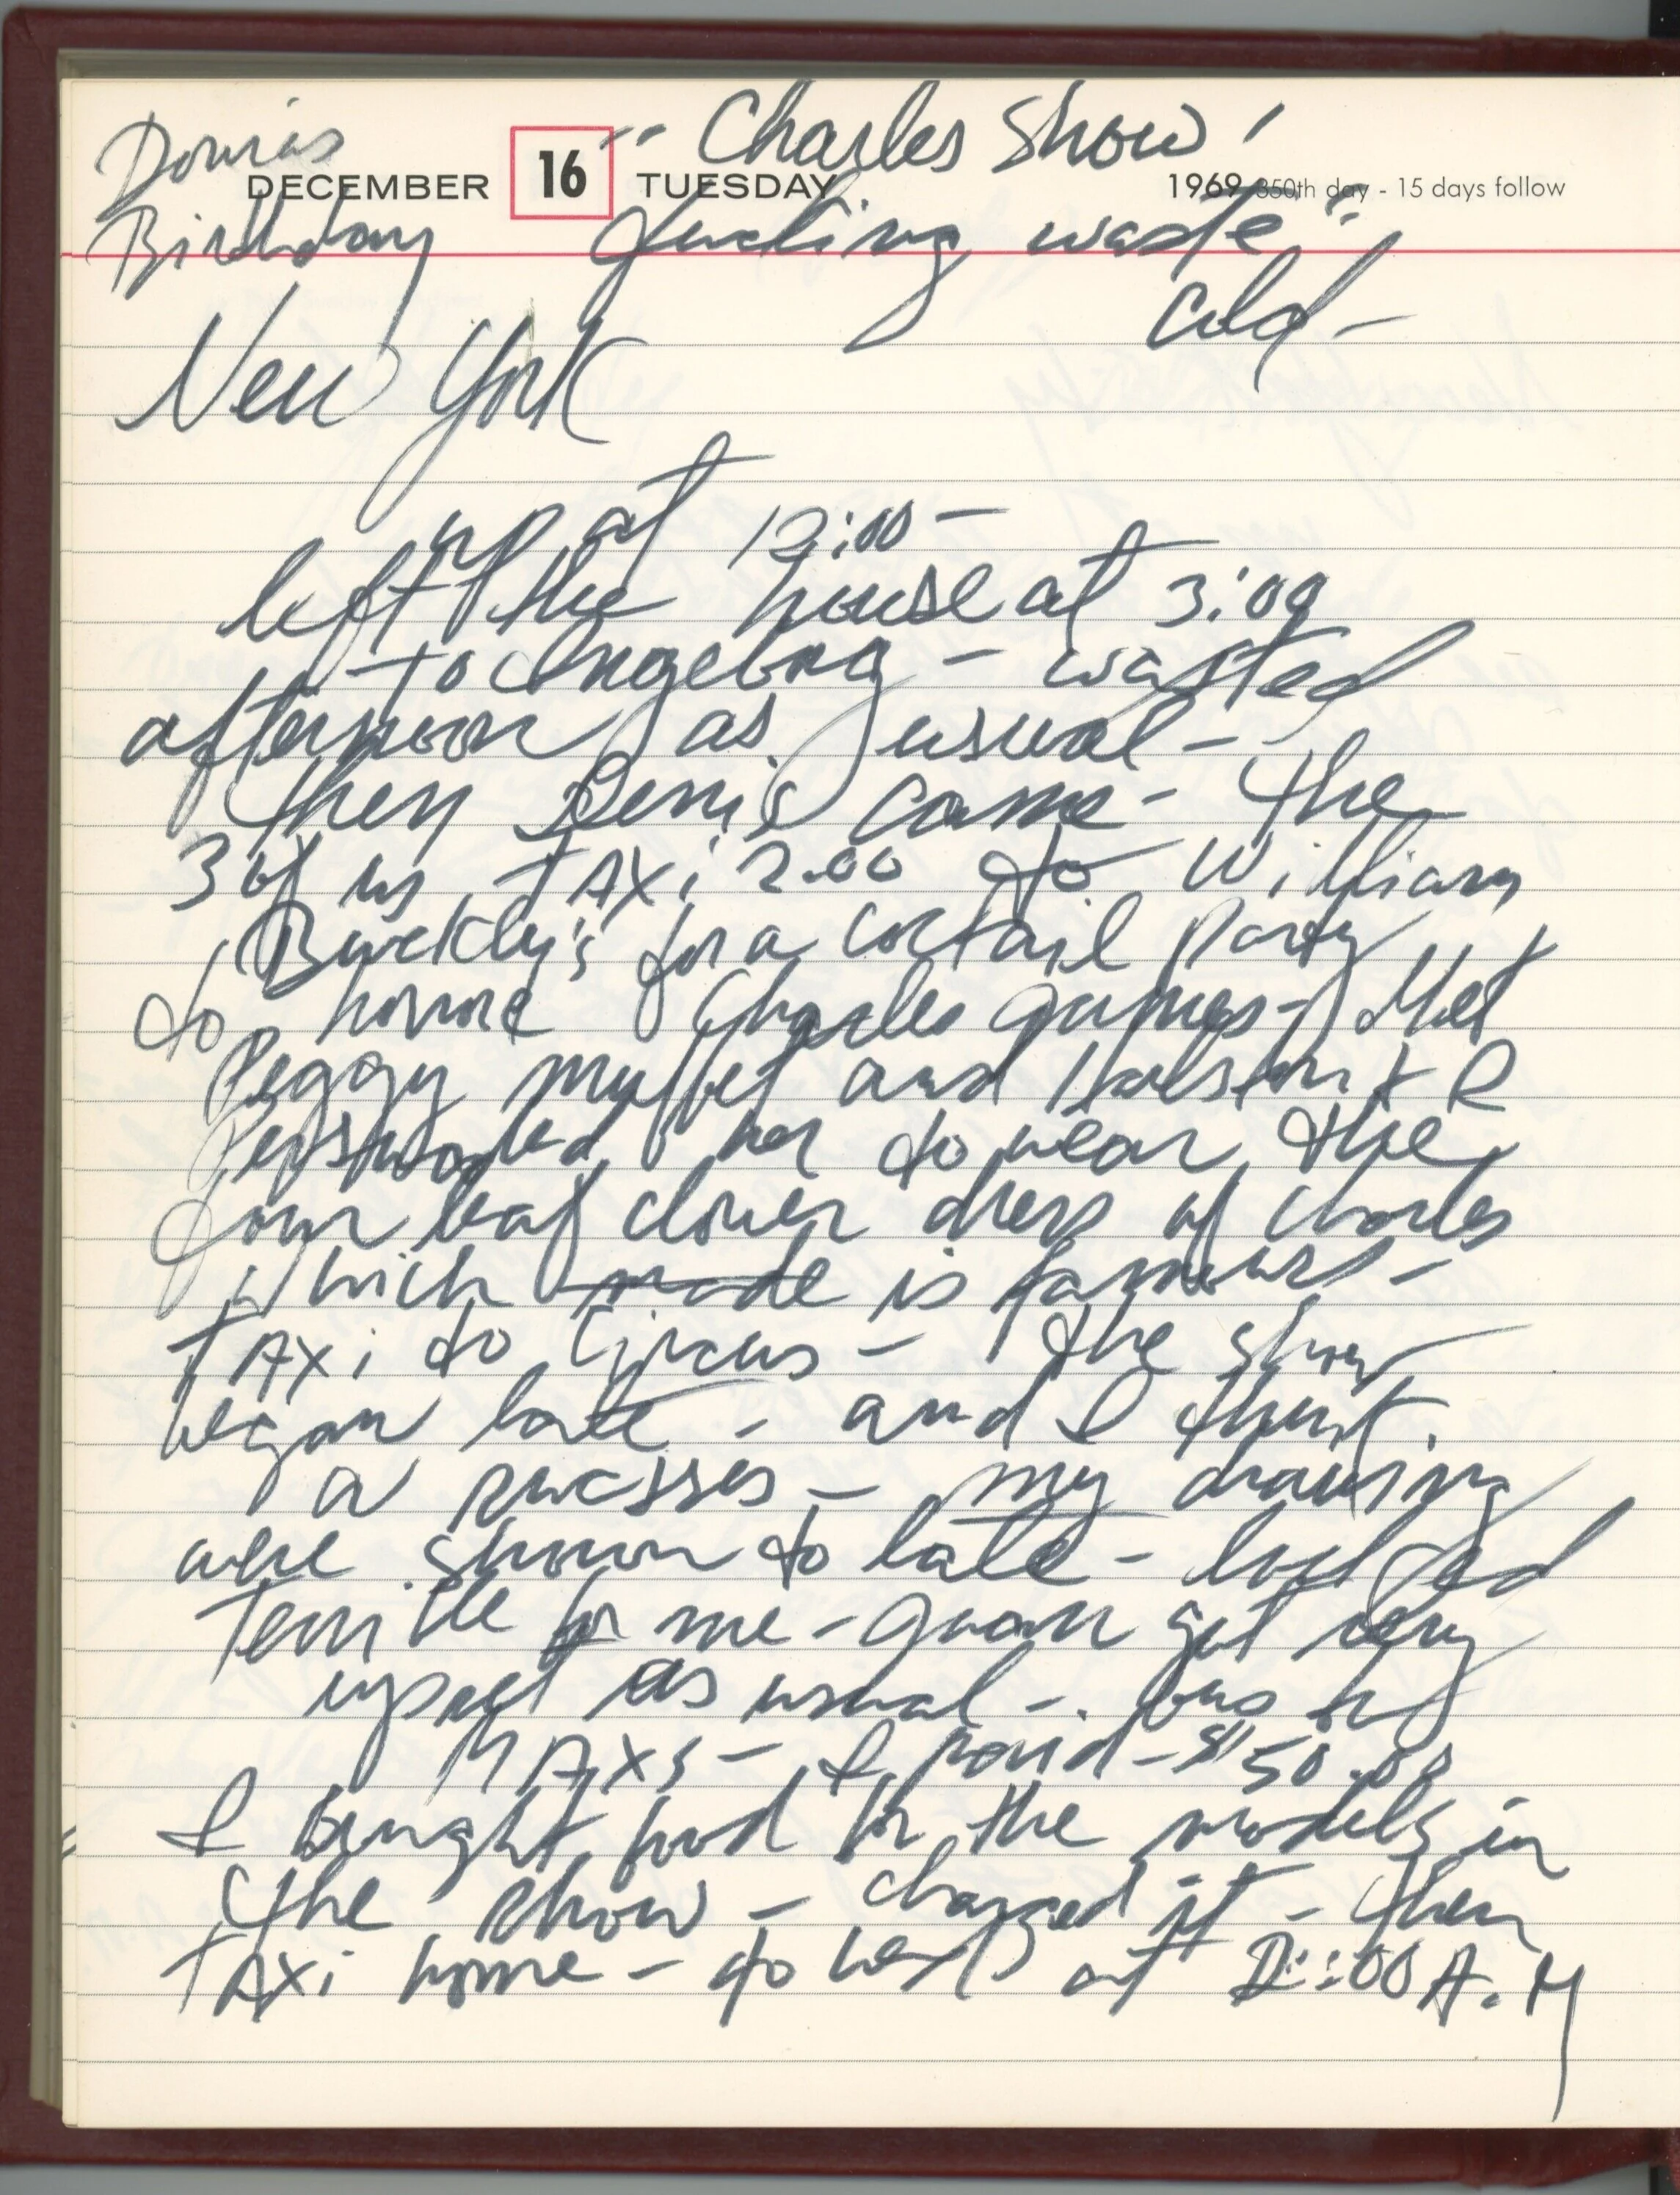 Donna's " Charles Show !
DECEMBER 16 TUESDAY 1969 350th day - 15 days follow
Birthday feeling waste"
cold -
New York
up at 12:00 -
left the house at 3:00
to Ingeborg - wasted
afternoon as usual -
then came - the
3 of us TAXi 2.00 to William
Buckly's for a coctail party
to honore Charles James - Met
Peggy and & I
her to wear the
four leaf clover dress of Charles
which made is famous -
TAXi to Circus - the show
began late - and I think
a sucsses - my drawing
were shown to late - looked
terrible for me - Juan got very
upset as usual -
MAXs - I paid - $50.00
I bought food for the models in
the show - charged it - then
TAXi home - to bed at :00 A.M